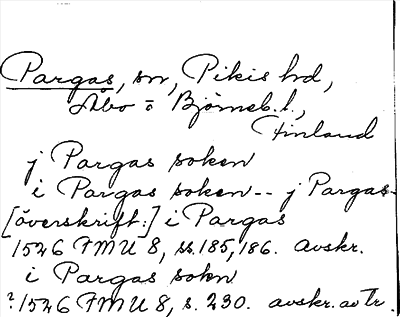 Pargas, sn, Pikis hd,
Åbo o Björneb. l.,
Finland
j Pargas soken
i Pargas soken -- j Pargas-
[överskrift:] i Pargas
1526 FMU 8, ss. 185, 186. avskr.
i Pargas sokn
? 1526 FMU 8, s. 230. avskr. av Tr.